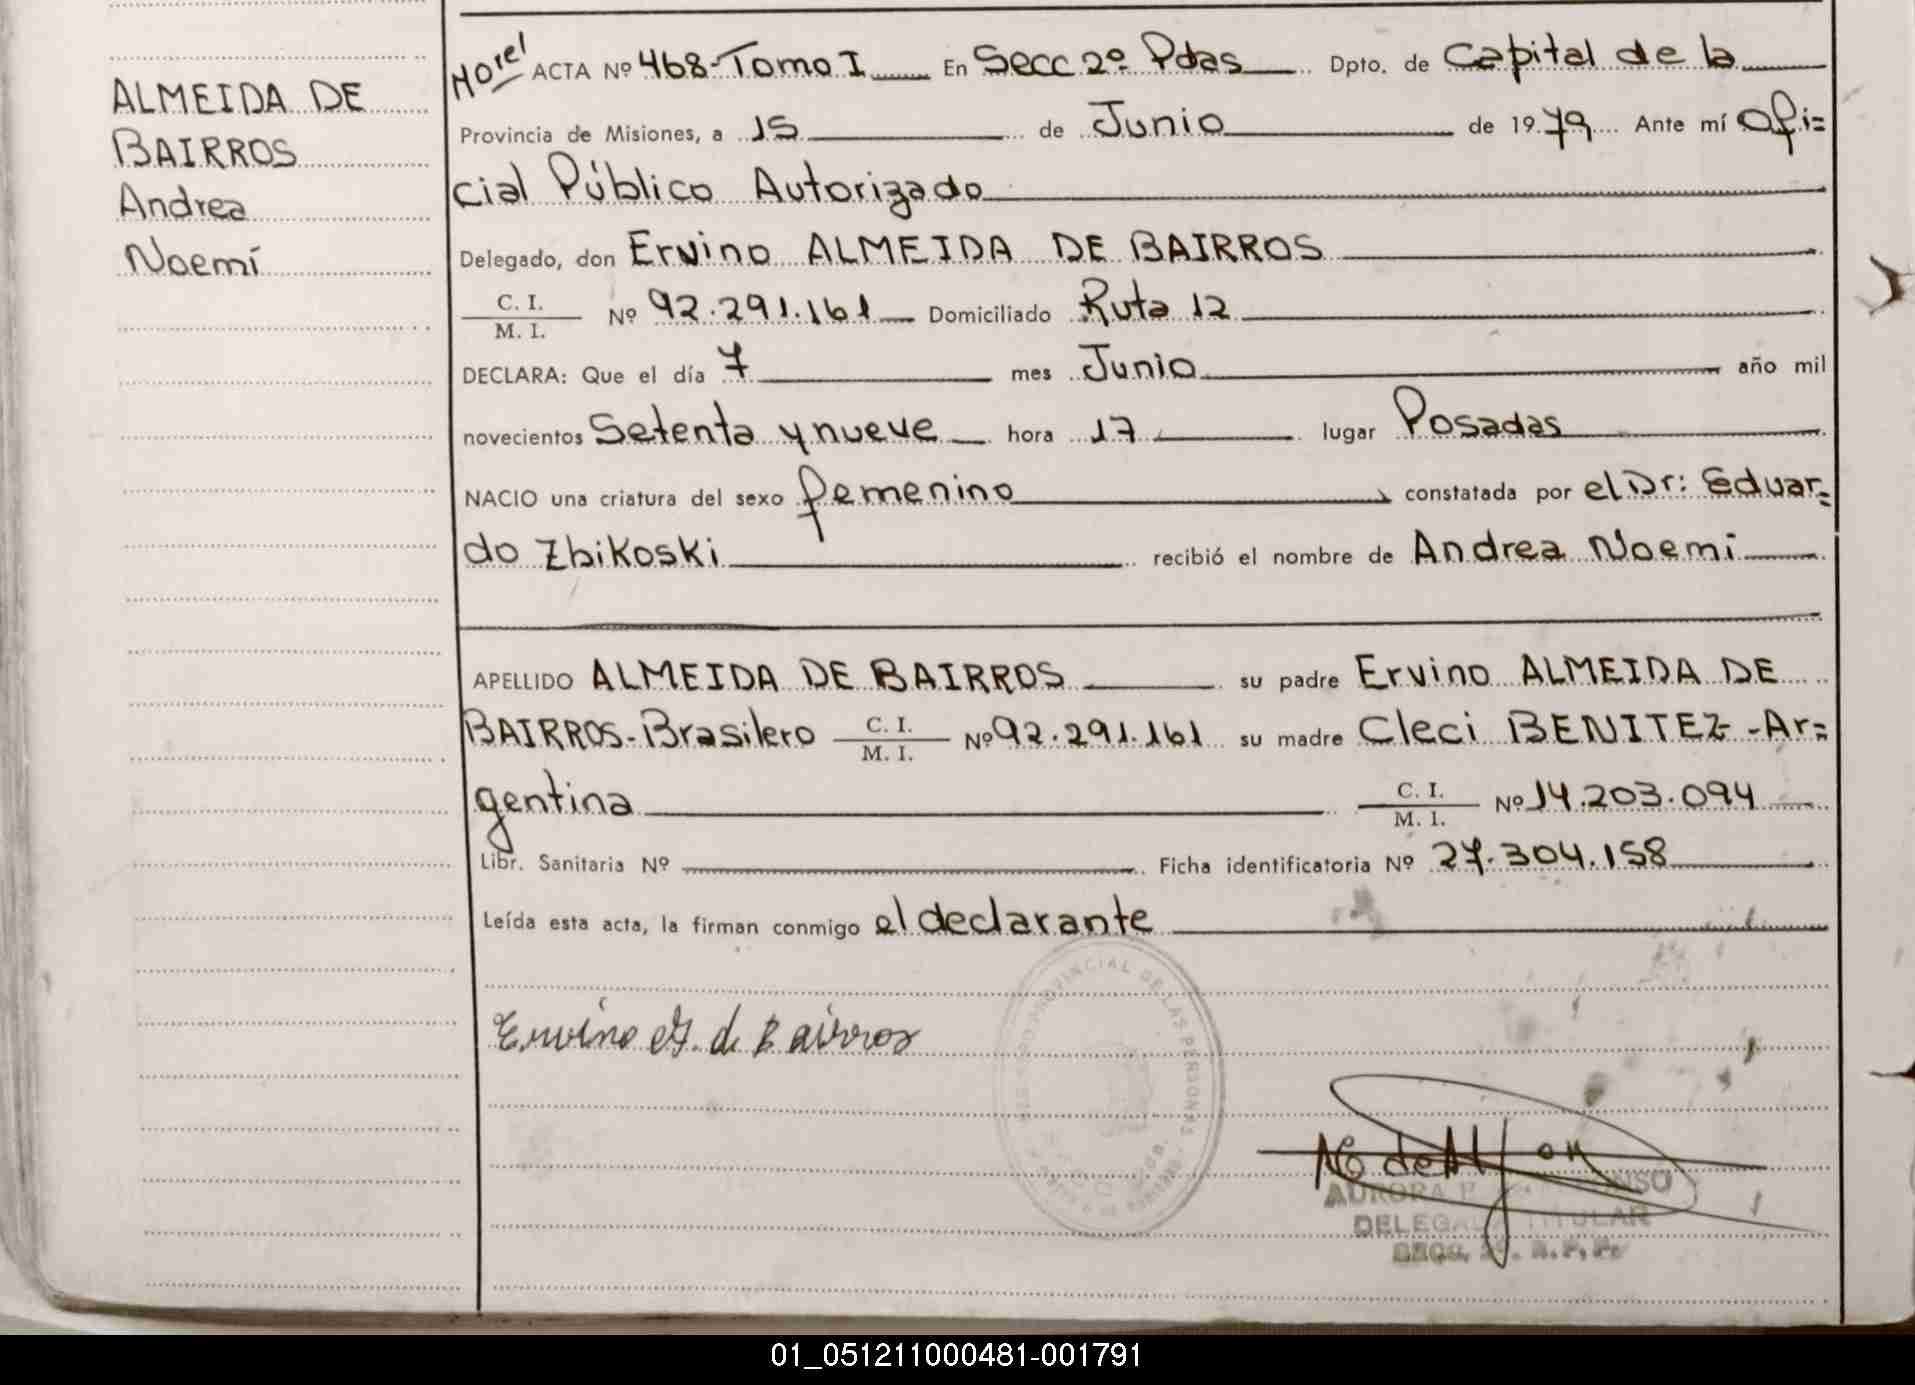 ALMEIDA DE
BAIRROS
Andrea
Noemí
ACTA Nº 468-Tomo I En Secc 2º Pdas Dpto. de Capital de la
Provincia de Misiones, a 15 de Junio de 1979 Ante mí Ofi=
cial Público Autorizado
Delegado, don Ervino ALMEIDA DE BAIRROS
C. I.
M. I. Nº 92.291.161 Domiciliado Ruta 12
DECLARA: Que el día 7 mes Junio año mil
novecientos Setenta y nueve hora 17 lugar Posadas
NACIO una criatura del sexo femenino constatada por el Dr: Eduar=
do Zbikoski recibió el nombre de Andrea Noemi
APELLIDO ALMEIDA DE BAIRROS su padre Ervino ALMEIDA DE
BAIRROS-Brasilero C. I. M. I. Nº 92.291.161 su madre Cleci BENITEZ-Ar=
gentina C. I. M. I. Nº 14.203.094
Libr. Sanitaria Nº Ficha identificatoria Nº 27.304.158
Leída esta acta, la firman conmigo el declarante
PROVINCIAL DE LAS PERSONAS
Ervino A. de Bairros
AURORA
DELEGADA TITULAR
01_051211000481-001791